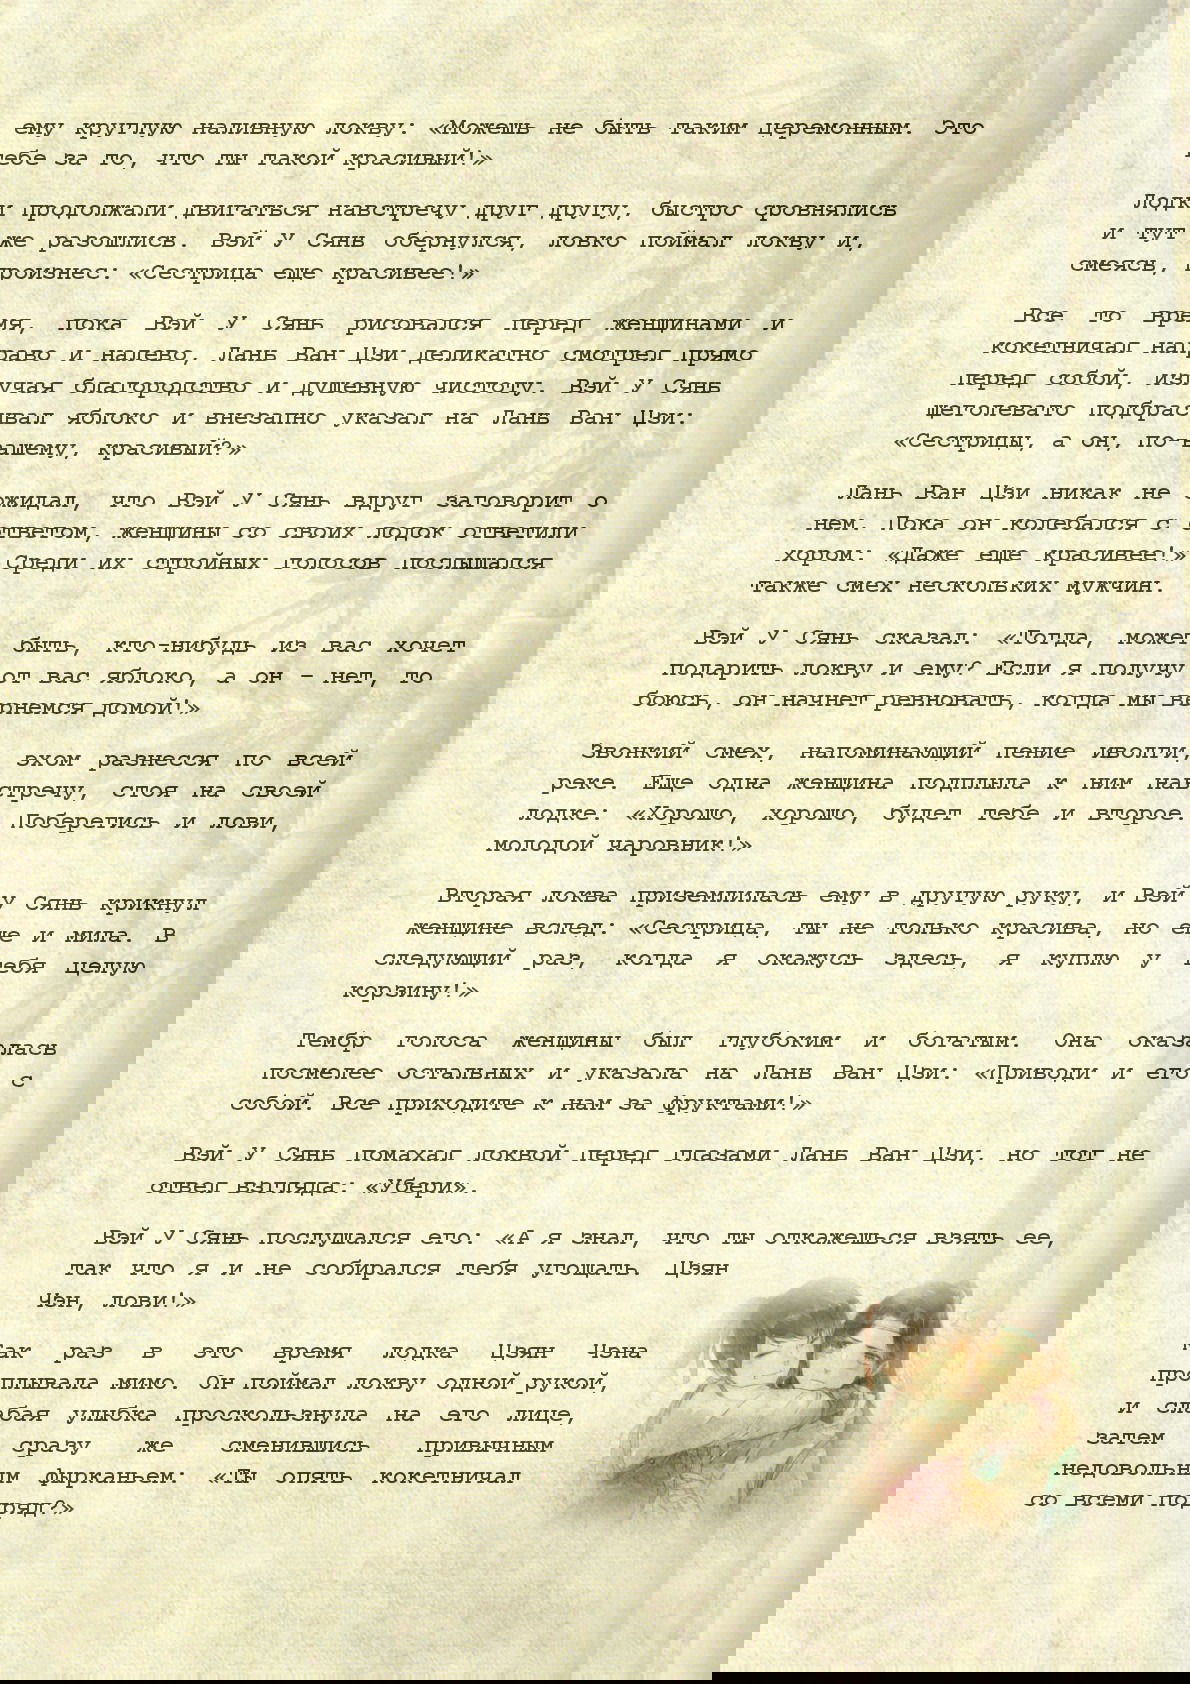 ему круглую наливную локву: «Можешь не быть таким церемонным. Это
тебе за то, что ты такой красивый!»
Лодки продолжали двигаться навстречу друг другу, быстро сровнялись
и тут же разошлись. Вэй У Сянь обернулся, ловко поймал локву и,
смеясь, произнес: «Сестрица еще красивее!»
Все то время, пока Вэй У Сянь рисовался перед женщинами и
кокетничал направо и налево, Лань Ван Цзи деликатно смотрел прямо
перед собой, излучая благородство и душевную чистоту. Вэй У Сянь
щеголевато подбрасывал яблоко и внезапно указал на Лань Ван Цзи:
«Сестрицы, а он, по-вашему, красивый?»
Лань Ван Цзи никак не ожидал, что Вэй У Сянь вдруг заговорит о
нем. Пока он колебался с ответом, женщины со своих лодок ответили
хором: «Даже еще красивее!» Среди их стройных голосов послышался
также смех нескольких мужчин.
Вэй У Сянь сказал: «Тогда, может быть, кто-нибудь из вас хочет
подарить локву и ему? Если я получу от вас яблоко, а он – нет, то
боюсь, он начнет ревновать, когда мы вернемся домой!»
Звонкий смех, напоминающий пение иволги, эхом разнесся по всей
реке. Еще одна женщина подплыла к ним навстречу, стоя на своей
лодке: «Хорошо, хорошо, будет тебе и второе. Поберегись и лови,
молодой чаровник!»
Вторая локва приземлилась ему в другую руку, и Вэй У Сянь крикнул
женщине вслед: «Сестрица, ты не только красива, но еще и мила. В
следующий раз, когда я окажусь здесь, я куплю у тебя целую
корзину!»
Тембр голоса женщины был глубоким и богатым. Она оказалась
посмелее остальных и указала на Лань Ван Цзи: «Приводи и его с
собой. Все приходите к нам за фруктами!»
Вэй У Сянь помахал локвой перед глазами Лань Ван Цзи, но тот не
отвел взгляда: «Убери».
Вэй У Сянь послушался его: «А я знал, что ты откажешься взять ее,
так что я и не собирался тебя угощать. Цзян
Чэн, лови!»
Как раз в это время лодка Цзян Чэна
проплывала мимо. Он поймал локву одной рукой,
и слабая улыбка проскользнула на его лице,
затем сразу же сменившись привычным
недовольным фырканьем: «Ты опять кокетничал
со всеми подряд?»